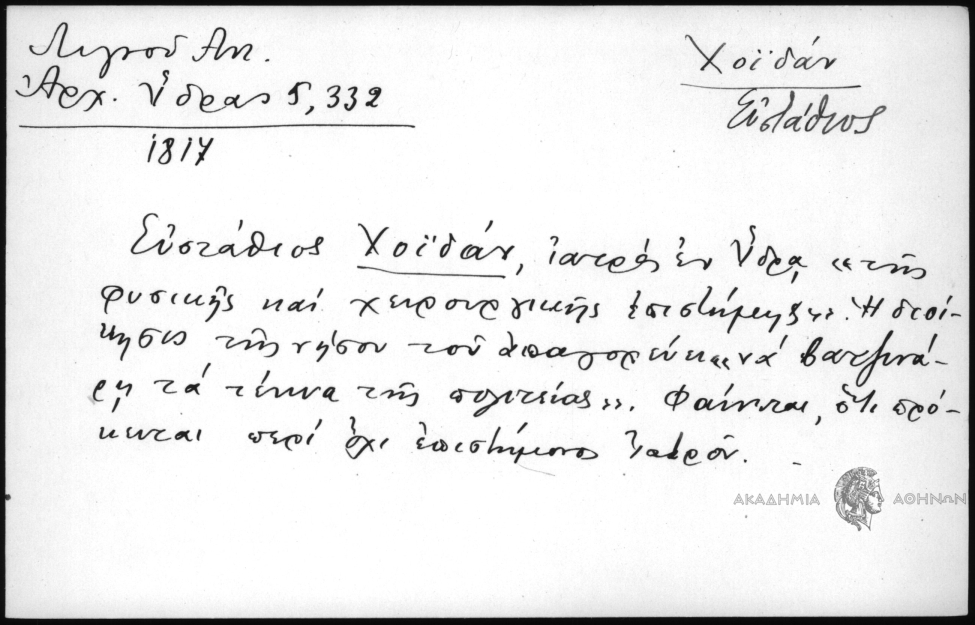 Λιγνοῦ Αντ.
Ἀρχ. Ὕδρας 5, 332
1817
Χοϊδάν
Εὐστάθιος
Εὐστάθιος Χοϊδάν, ἰατρός ἐν Ὕδρᾳ, «τῆς
φυσικῆς καί χειρουργικῆς ἐπιστήμης». Ἡ διοί-
κησις τῆς νήσου τοῦ ἀπαγορεύει «νά βατζινά-
ρῃ τά τέκνα τῆς πολιτείας». Φαίνεται, ὅτι πρό-
κειται περί ὄχι ἐπιστήμονος ἰατροῦ.
ΑΚΑΔΗΜΙΑ ΑΘΗΝΩΝ